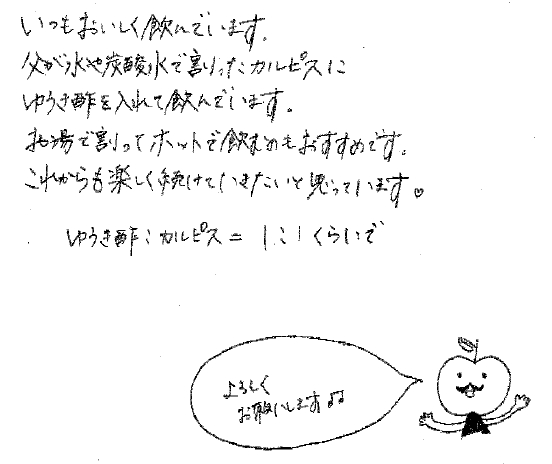 いつもおいしく飲んでいます。
父が水や炭酸水で割ったカルピスに
ゆうき酢を入れて飲んでいます。
お湯で割ってホットで飲むのもおすすめです。
これからも楽しく続けていきたいと思っています♡
ゆうき酢:カルピス=1:1くらいで
よろしく
お願いします♪♪